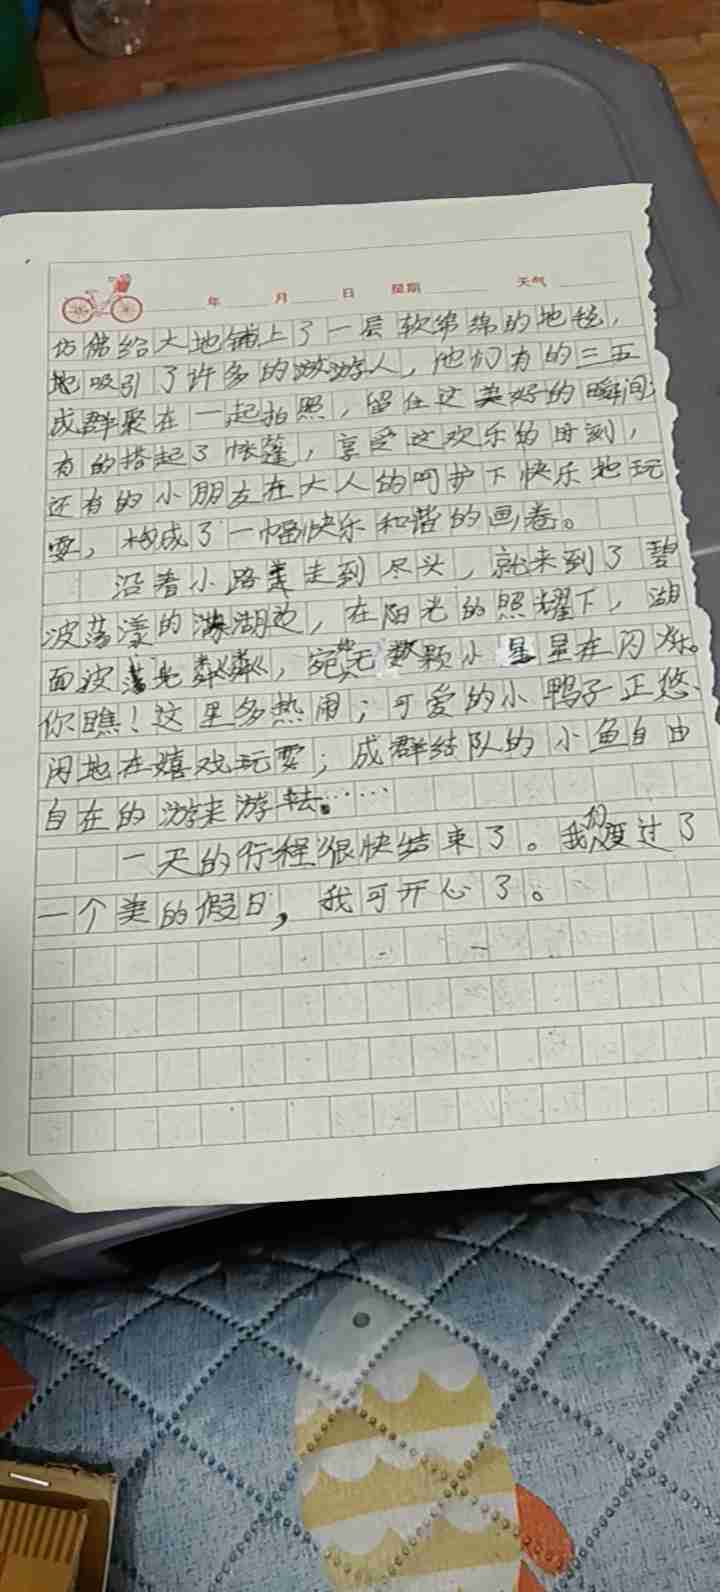 年 月 日 星期 天气
仿佛给大地铺上了一层软绵绵的地毯，
地吸引了许多的游人，他们有的三五
成群聚在一起拍照，留住这美好的瞬间；
有的搭起了帐篷，享受这欢乐的时刻，
还有的小朋友在大人的呵护下快乐地玩
耍，构成了一幅快乐和谐的画卷。
沿着小路走到尽头，就来到了碧
波荡漾的湖边，在阳光的照耀下，湖
面波光粼粼，宛如无数颗小星星在闪烁。
你瞧！这里多热闹；可爱的小鸭子正悠
闲地在嬉戏玩耍；成群结队的小鱼自由
自在的游来游去……
一天的行程很快结束了。我们度过了
一个美的假日，我可开心了。